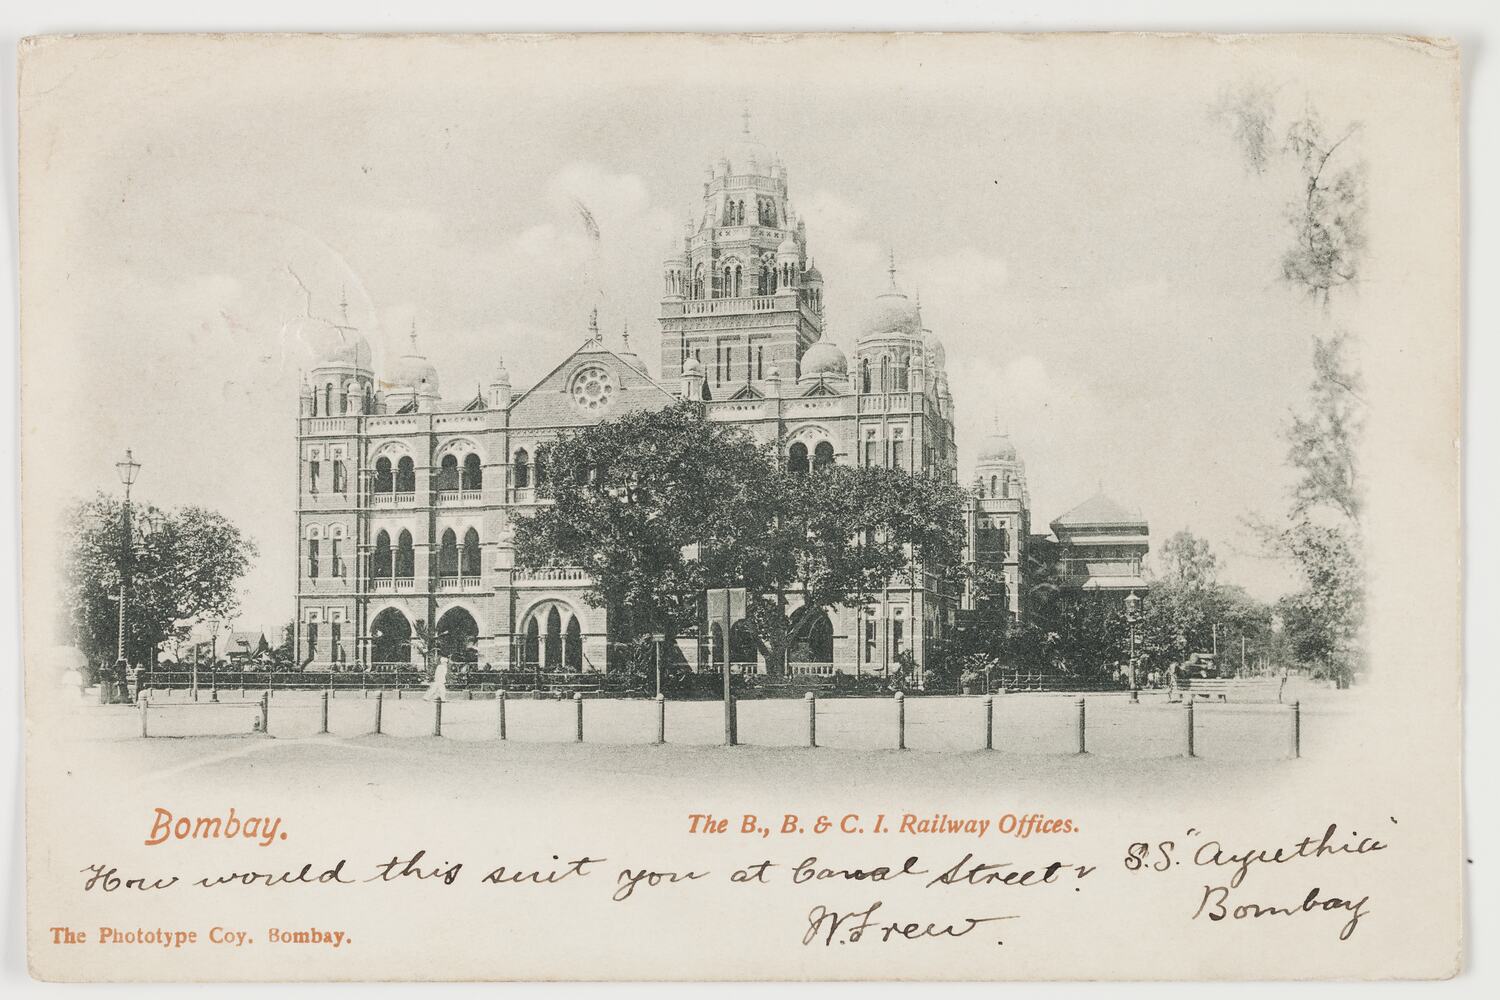 Bombay.
The B., B. & C. I. Railway Offices.
How would this suit you at Canal Street?
S.S. "Ayuthia"
Bombay
W. Frew.
The Phototype Coy. Bombay.